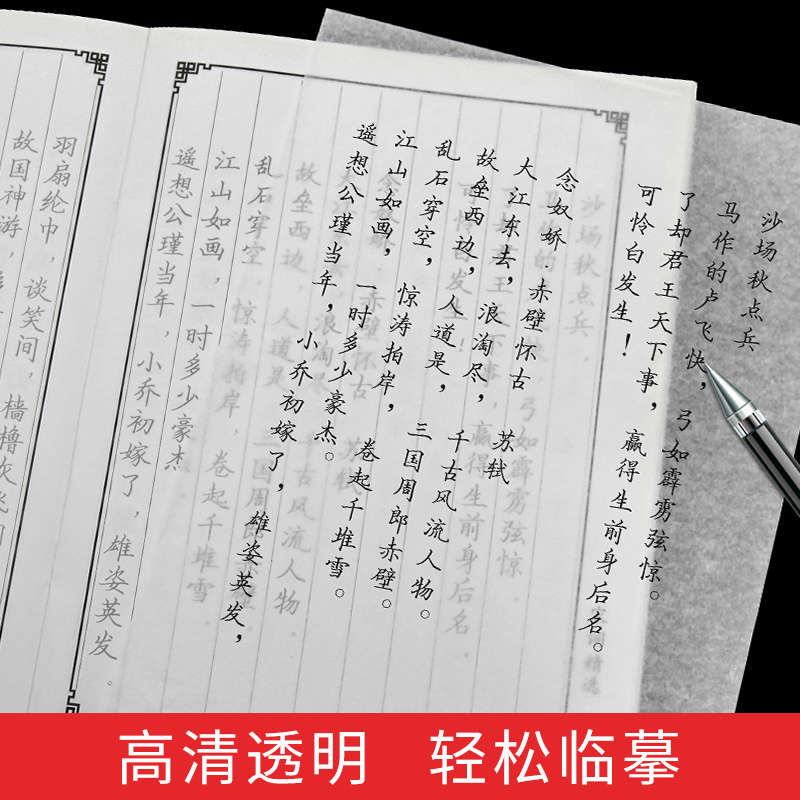 沙场秋点兵
马作的卢飞快，弓如霹雳弦惊。
了却君王天下事，赢得生前身后名。
可怜白发生！
念奴娇·赤壁怀古 苏轼
大江东去，浪淘尽，千古风流人物。
故垒西边，人道是，三国周郎赤壁。
乱石穿空，惊涛拍岸，卷起千堆雪。
江山如画，一时多少豪杰。
遥想公瑾当年，小乔初嫁了，雄姿英发，
沙场秋点兵
故垒西边，人道是，三国周郎赤壁。
乱石穿空，惊涛拍岸，卷起千堆雪。
江山如画，一时多少豪杰
遥想公瑾当年，小乔初嫁了，雄姿英发。
羽扇纶巾，谈笑间，樯橹灰飞
故国神游，
高清透明 轻松临摹